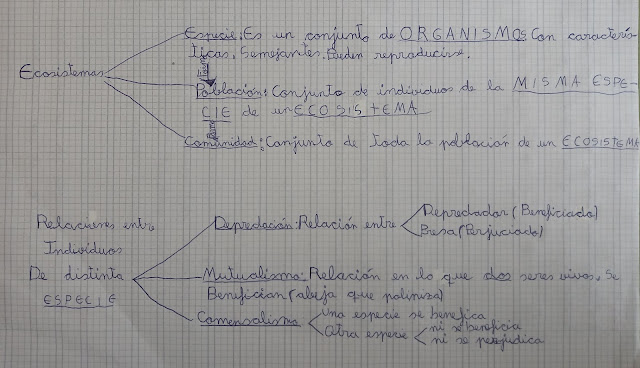 Especie: Es un conjunto de ORGANISMOS Con caracterís-
ticas, Semejantes. Pueden reproducirse.
Ecosistemas
Población: Conjunto de individuos de la MISMA ESPE-
CIE de un ECOSISTEMA
Comunidad: Conjunto de toda la población de un ECOSISTEMA
Relaciones entre
Individuos
De distinta
ESPECIE
Depredación: Relación entre
Depredador (Beneficiado)
Presa (Perjuciado)
Mutualismo: Relación en lo que dos seres vivos, Se
Benefician (abeja que poliniza)
Comensalismo
una especie se benefica
otra especie
ni se beneficia
ni se perjudica